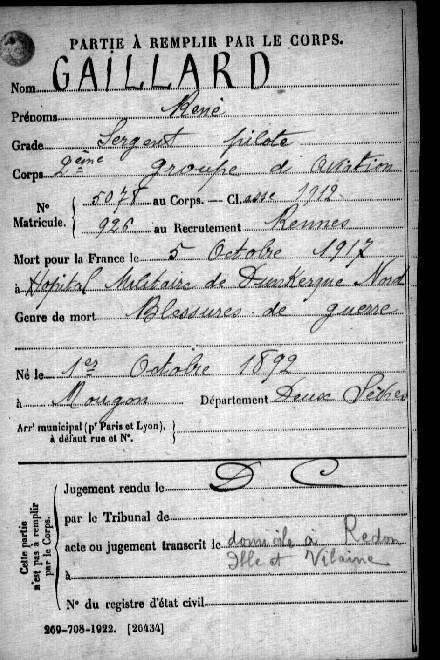 PARTIE À REMPLIR PAR LE CORPS.
Nom GAILLARD
Prénoms René
Grade Sergent pilote
Corps 2ème groupe d'aviation
N° Matricule. { 5078 au Corps. — Classe 1912
926 au Recrutement Rennes
Mort pour la France le 5 Octobre 1917
à Hôpital Militaire de Dunkerque Nord
Genre de mort Blessures de guerre
Né le 1er Octobre 1892
à Mougon Département Deux Sèvres
Arr' municipal (p' Paris et Lyon), à défaut rue et N°. }
Cette partie n'est pas à remplir par le Corps.
Jugement rendu le D C
par le Tribunal de
acte ou jugement transcrit le domicile à Redon
Ille et Vilaine
à
N° du registre d'état civil
269-708-1922. [26434]